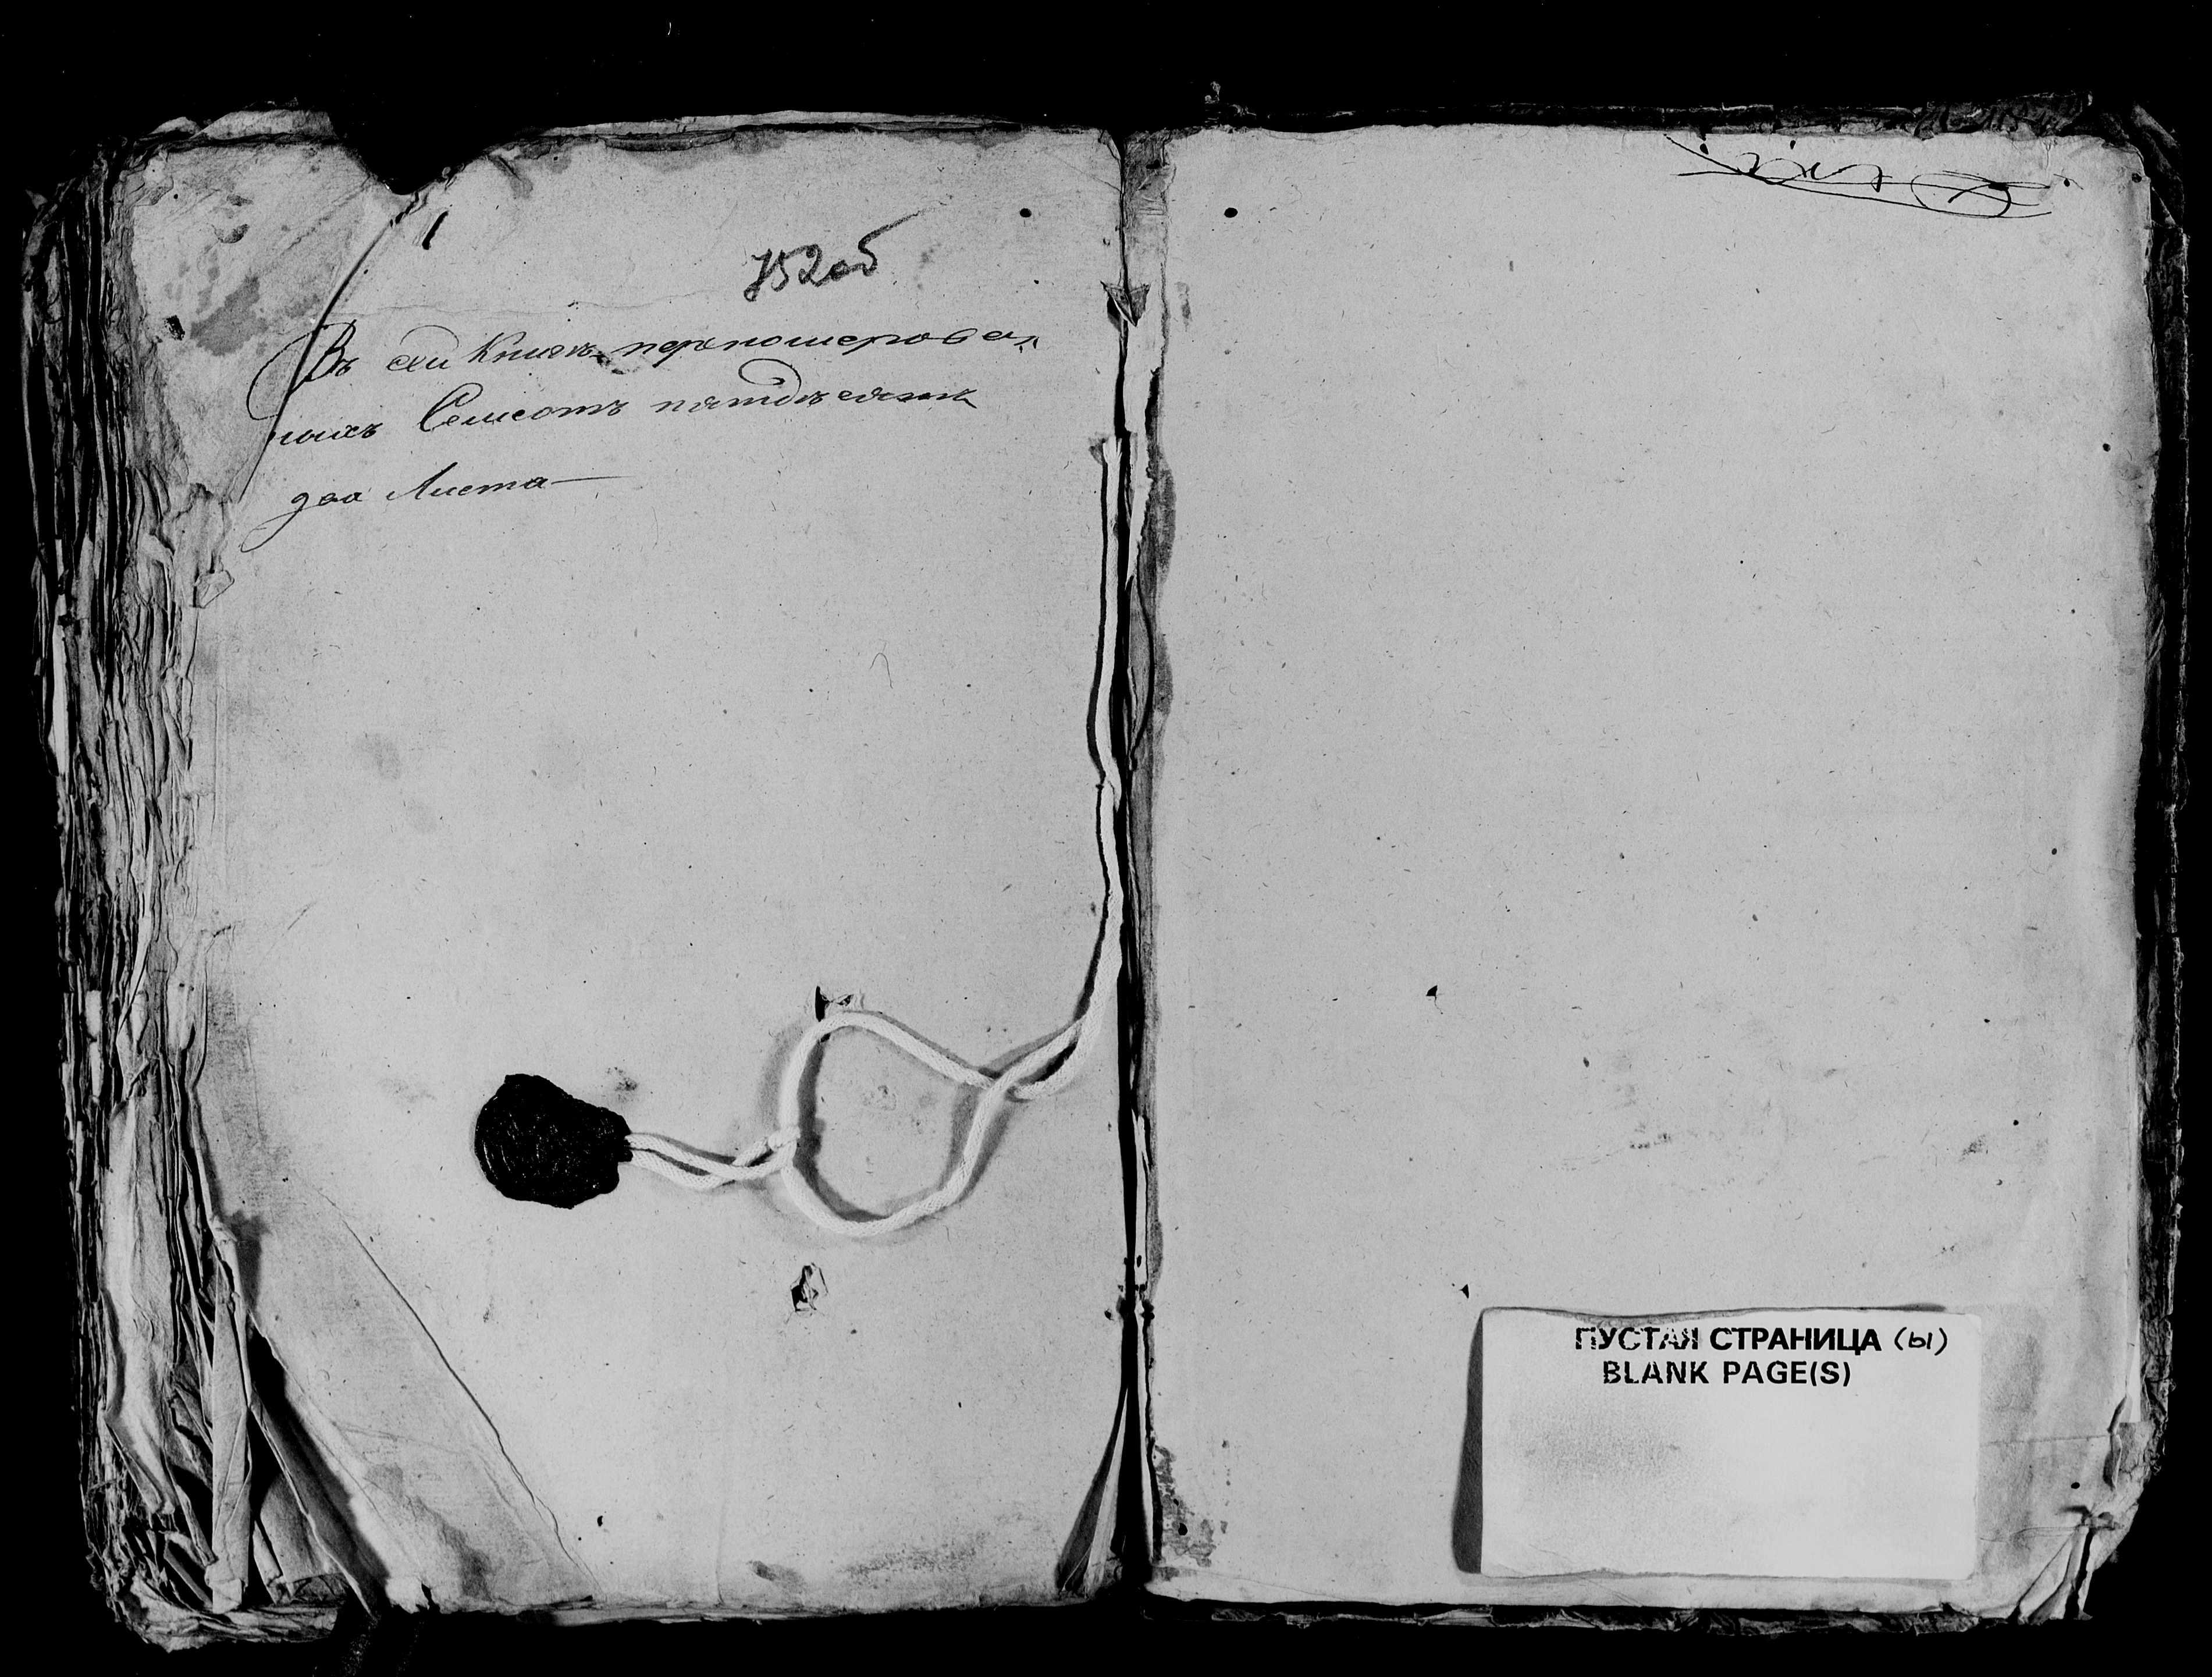 752об
Въ сей Книгѣ перномерован„
ныхъ Семсотъ пятдесятъ
два Листа
ПУСТАЯ СТРАНИЦА (ы)
BLANK PAGE(S)